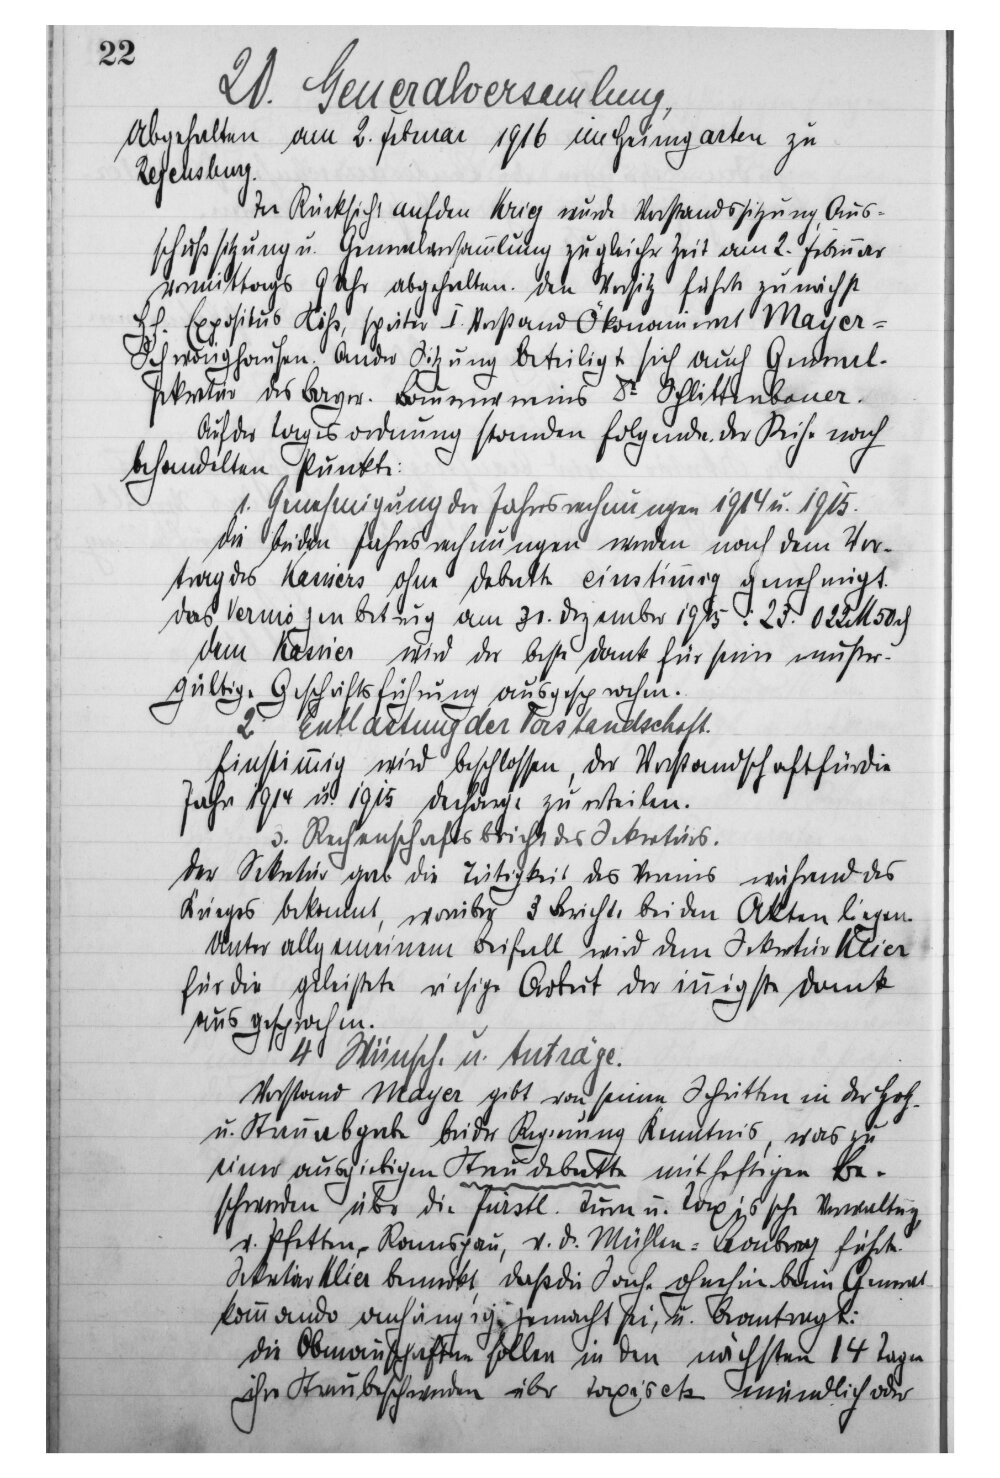 22
20. Generalversamlung,
Abgehalten am 2. Februar 1916 im Heimgarten zu
Regensburg.
In Rücksicht auf den Krieg wurde Vorstandssitzung, Aus-
schußsitzung u. Generalversam̄lung zu gleicher Zeit am 2. Februar
vormittags 9 Uhr abgehalten. Den Vorsitz führte zunächst
H. H. Expositus, später I. Vorstand Ökonomierat Mayer=
Schwaighausen. An der Sitzung beteiligt sich auch General-
sekretär des bayer. Bauernvereins Dr. Schlittenbauer.
Auf der Tagesordnung standen folgende der Reihe nach
behandelten Punkte:
1. Genehmigung der Jahresrechnungen 1914 u. 1915.
Die beiden Jahresrechnungen werden nach dem Vor-
trag des Kassiers ohne Debatte einstim̄ig genehmigt.
Das Vermögen betrug am 31. Dezember 1915: 23.022 M 50 ₰
Dem Kassier wird der beste Dank für seine muster-
gültige Geschäftsführung ausgesprochen.
2. Entlastung der Vorstandschaft.
Einstim̄ig wird beschlossen, der Vorstandschaft für die
Jahre 1914 u. 1915 Decharge zu erteilen.
3. Rechenschaftsbericht des Sekretärs.
Der Sekretär gab die Tätigkeit des Vereins während des
Krieges bekannt, worüber 3 Berichte bei den Akten liegen.
Unter allgemeinem Beifall wird dem Sekretär Klier
für die geleistete riesige Arbeit der in̄igste Dank
ausgesprochen.
4 Wünsche u. Anträge.
Vorstand Mayer gibt von seinen Schritten in der Holz-
u. Streuabgabe bei der Regierung Kenntnis, was zu
einer ausgiebigen Streudebatte mit heftigen Be-
schwerden über die fürstl. Turn u. Taxissche Verwaltung,
v. Pfetten-Ramspau, v. d. Mühlen= führte.
Sekretär Klier bemerkt, daß die Sache ohnehin beim General-
kom̄ando anhängig gemacht sei, u. beantragt:
Die Obmannschaften sollen in den nächsten 14 Tagen
ihre Streubeschwerden über Taxis etz mündlich oder